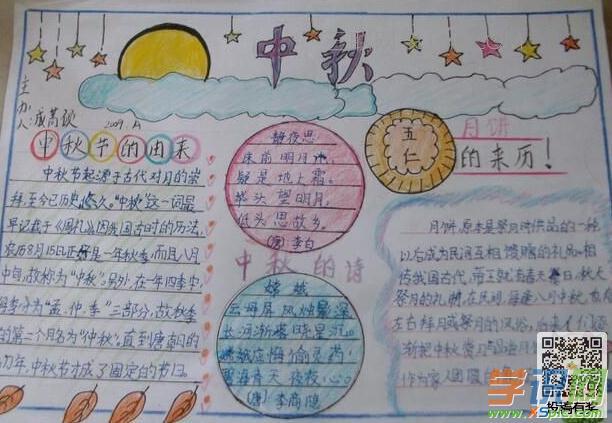 中秋
主办人:
2009.
中秋节的由来
中秋节起源于古代对月的崇
拜,至今已历史悠久。"中秋"这一词最
早记载于《周礼》因我国古时的历法,
农历8月15日正好是一年秋季,而且八月
中旬,故称为"中秋"。另外,在一年四季中,
季分为"孟、仲、季"三部分,故秋季
的第二个月名为"仲秋"。直到唐朝的
初年,中秋节才成了固定的节日。
静夜思
床前明月光
疑是地上霜。
举头望明月,
低头思故乡。
(唐)李白
中秋的诗
嫦娥
云母屏风烛影深
长河渐落晓星沉。
嫦娥应悔偷灵药,
碧海青天夜夜心。
(唐)李商隐
五仁
月饼
的来历!
月饼,原本是祭月时供品的一种
以后成为民间互相馈赠的礼品。相
传我国古代,帝王就有春天祭日,秋天
祭月的礼制,在民间,每逢八月中秋,也有
左右拜月或祭月的风俗,
渐把中秋赏月与品
作为家人团圆的
学课网
www.xspic.com
投稿有奖